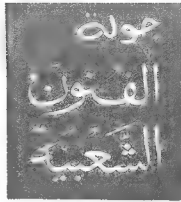 جولة
الفنون
الشعبية